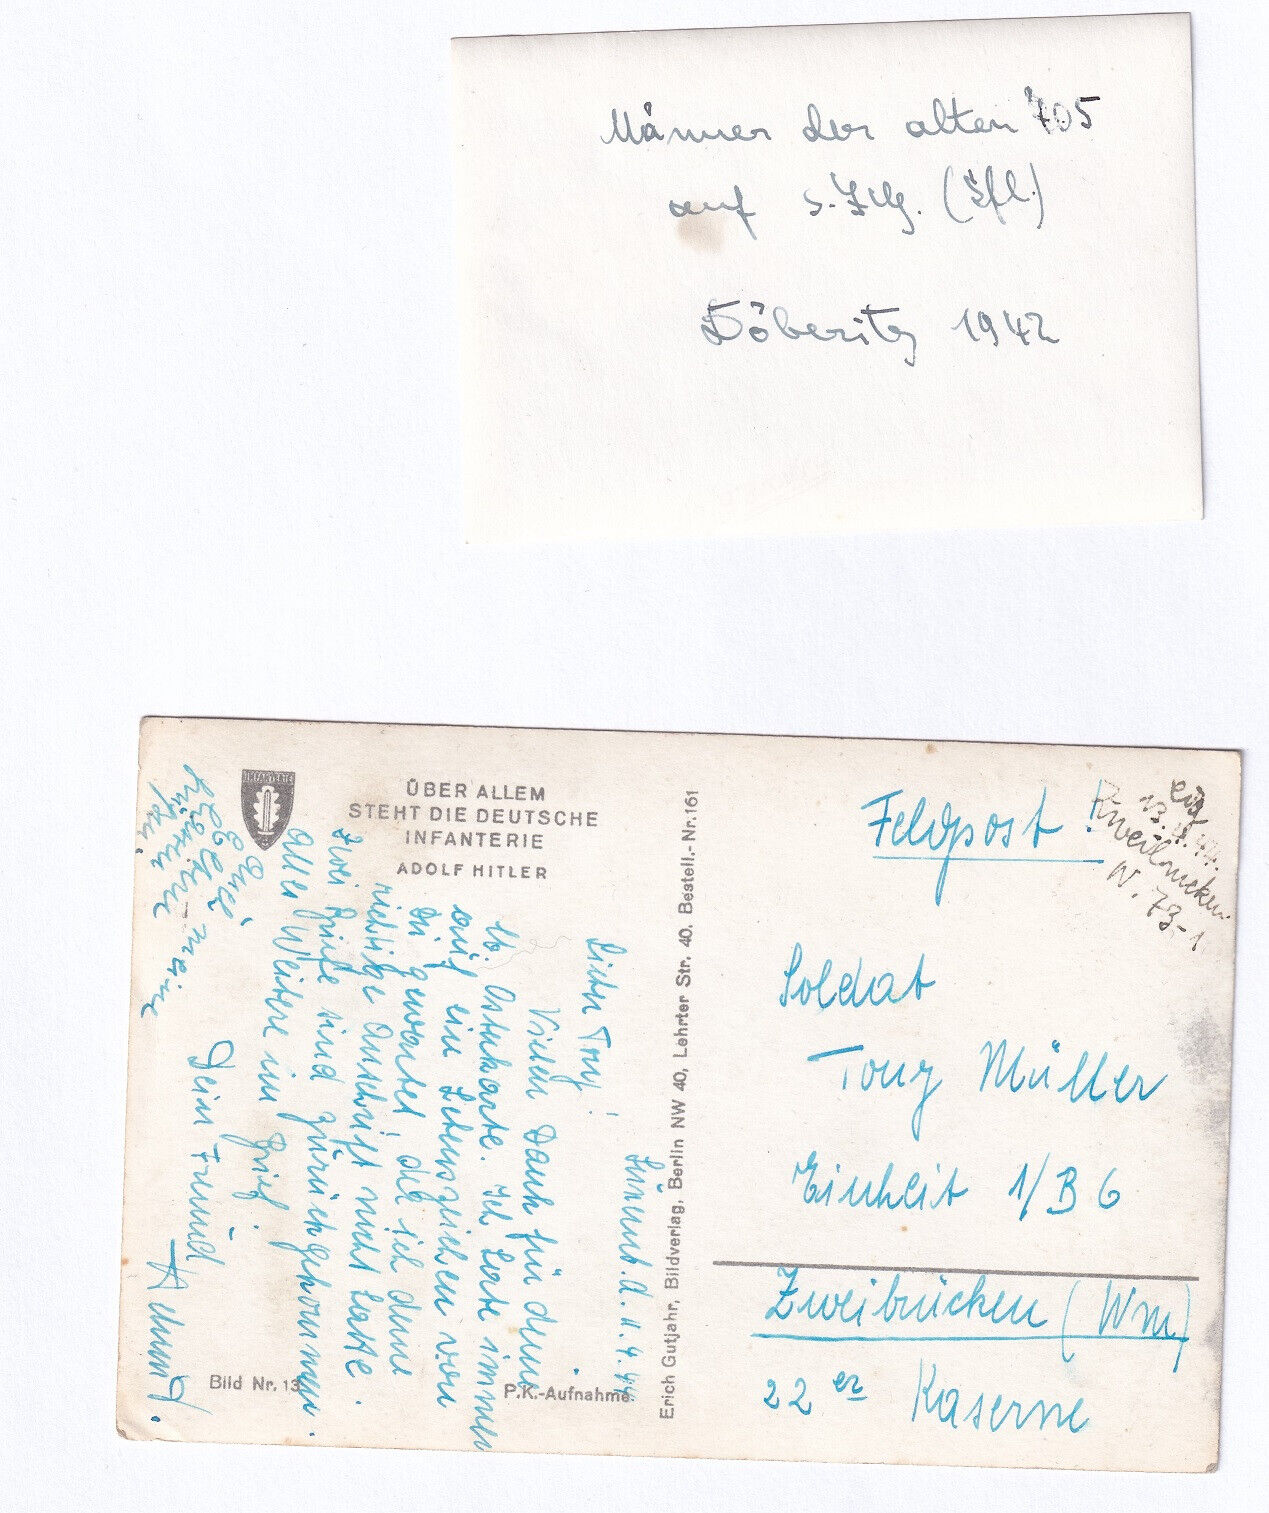 Männer der alten 705
auf s.IG. (Sfl.)
Döberitz 1942
INFANTERIE
ÜBER ALLEM
STEHT DIE DEUTSCHE
INFANTERIE
ADOLF HITLER
d. 11.4.44
Lieber Tony!
Vielen Dank für deine
lb. Osterkarte. Ich habe immer
auf ein Lebenszeichen von
dir gewartet, da ich deine
richtige Anschrift nicht hatte.
Zwei Briefe sind zurückgekommen.
Alles Weitere im Brief.
Dein Freund
Bild Nr. 13
P.K.-Aufnahme
Erich Gutjahr, Bildverlag, Berlin NW 40, Lehrter Str. 40. Bestell.-Nr. 161
Feldpost!
Zweibrücken
Soldat
Tony Müller
Einheit 1/B 6
Zweibrücken (Wm)
22er Kaserne